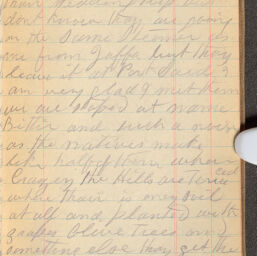 don't know they are going
on the same Steamer as
me from Jaffa but they
leave it at Port Said I
am very glad I met them
we are stoped at
Bittir and such a noise
as the natives make
half of them
Crazy the Hills are Terraced
where thair is any soil
at all and planted with
grapes Olive Trees and
something else thay get the